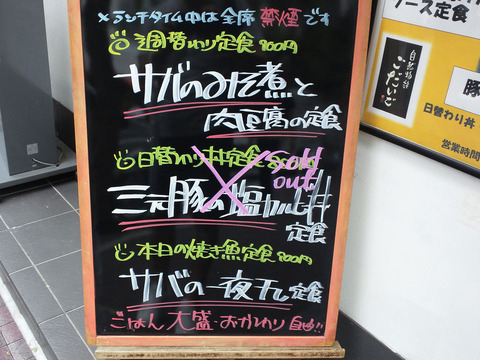 ×ランチタイム中は全席禁煙です
週替わり定食900円
サバのみそ煮と
肉豆腐の定食
日替わり丼定食
sold out!
三元豚の塩カルビ丼
定食
本日の焼き魚定食900円
サバの一夜干し定食
ごはん大盛・おかわり自由!!
ソース定食
自然物語
ごだいご
豚
日替わり丼
営業時間